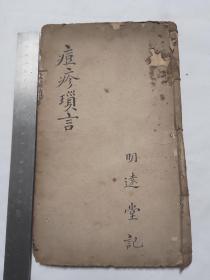 痘疹瑣言
明遠堂記